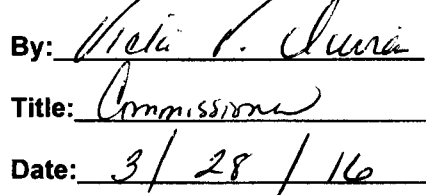 By: Vicki P.
Title: Commissioner
Date: 3 / 28 / 16